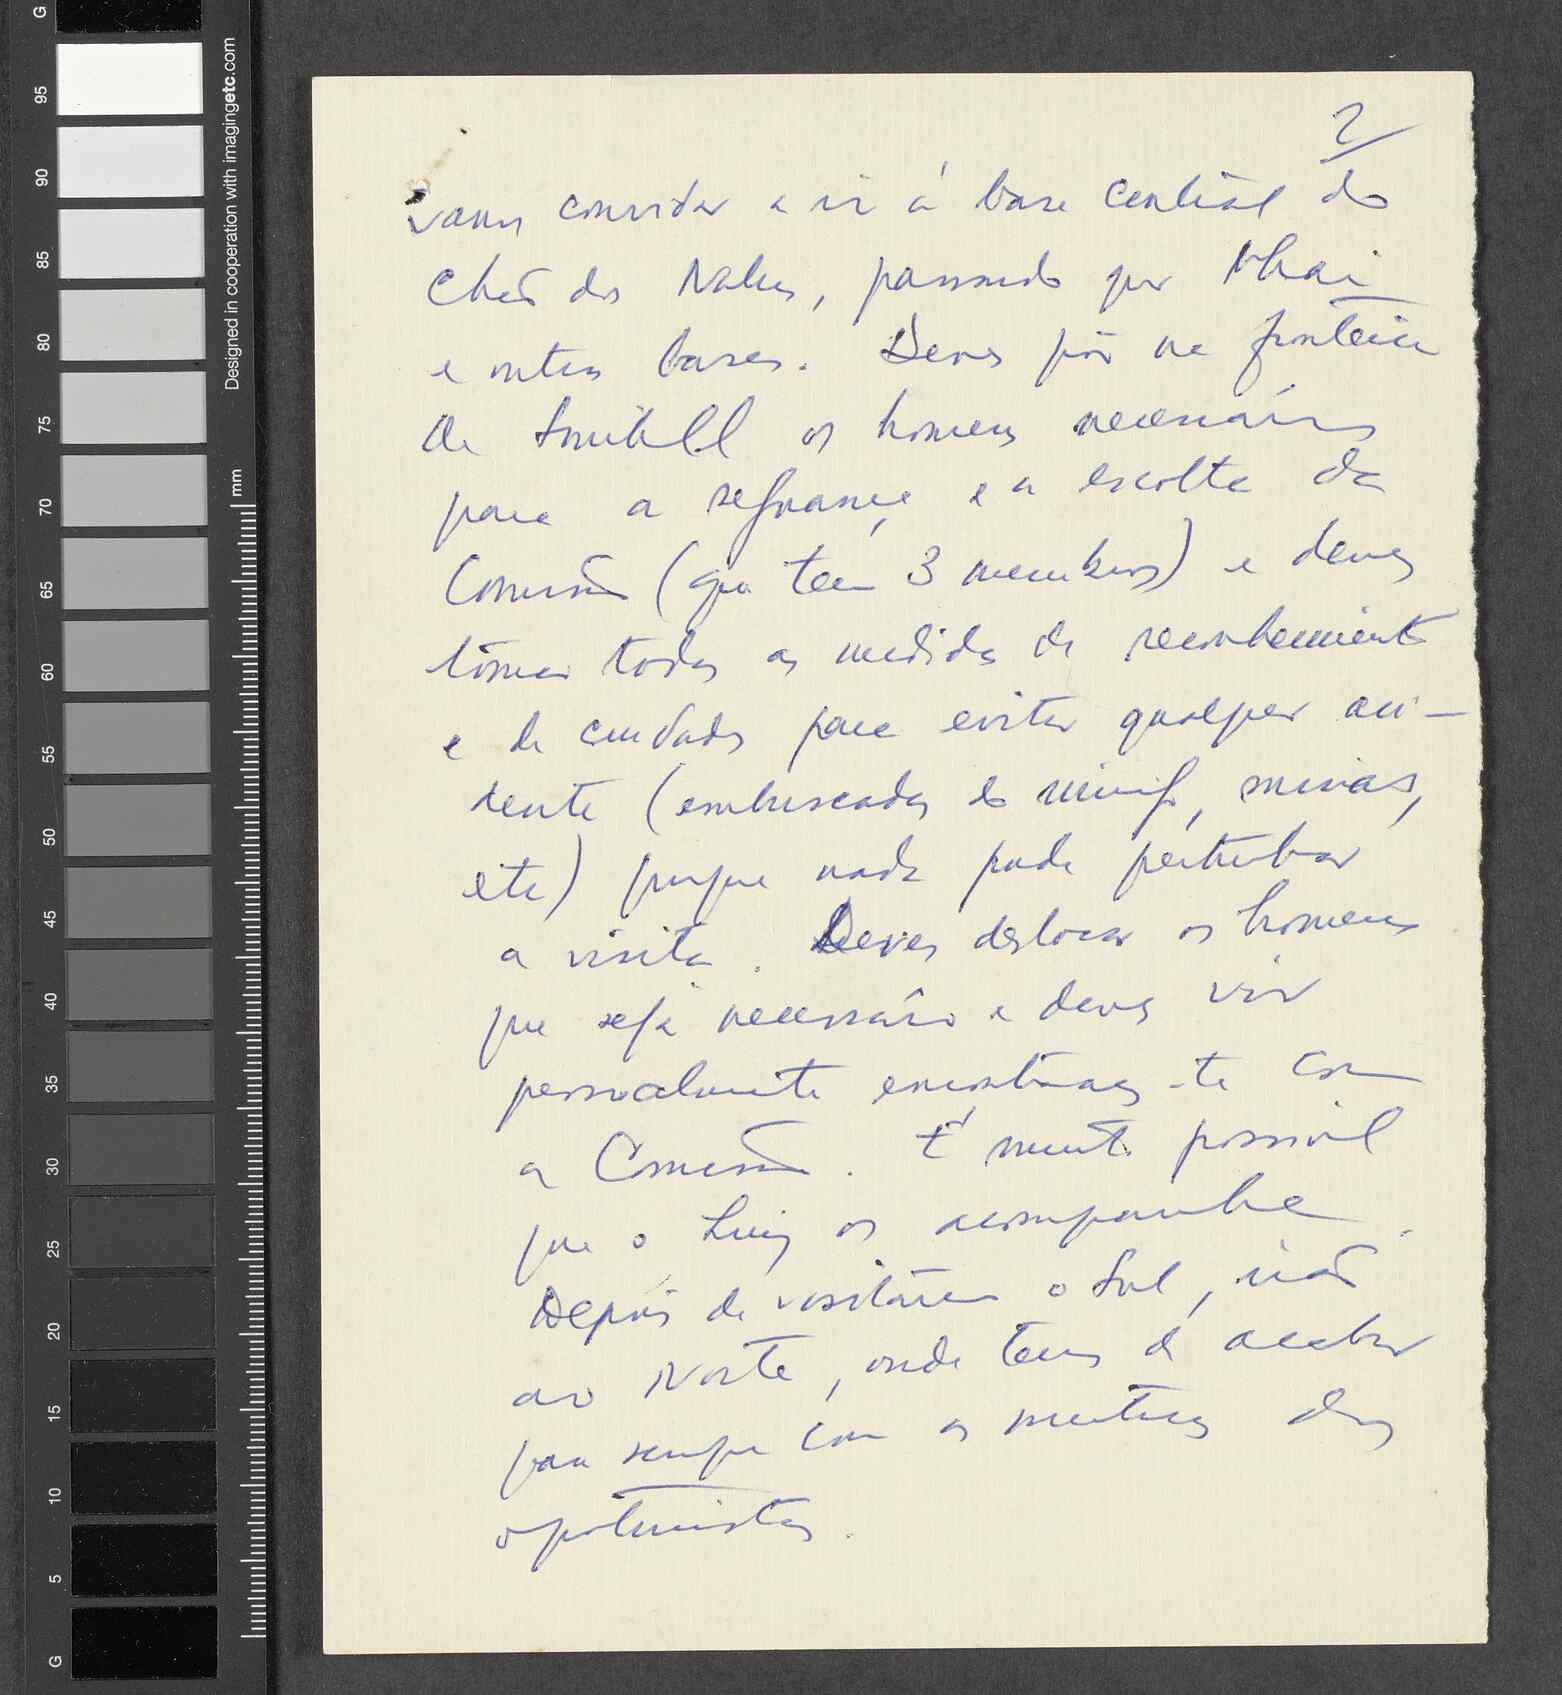 2
vamos convidar a ir à base central do
Chão dos Nalus, passando por Nhai
e outras bases. Deves pôr na fronteira
de os homens necessários
para a segurança e a escolta da
Comissão (que tem 3 membros) e deves
tomar todas as medidas de reconhecimento
e de cuidados para evitar qualquer aci-
dente (emboscadas do inimigo, minas,
etc) porque nada pode perturbar
a visita. Deves deslocar os homens
que seja necessário e deves vir
pessoalmente encontrares-te com
a Comissão. É muito possível
que o Luiz os acompanhe.
Depois de visitarem o Sul, irão
ao Norte, onde temos de acabar
para sempre com as mentiras dos
oportunistas.
G
95
90
85
80
75
70
65
60
55
50
45
40
35
30
25
20
15
10
5
G
mm
Designed in cooperation with imagingetc.com